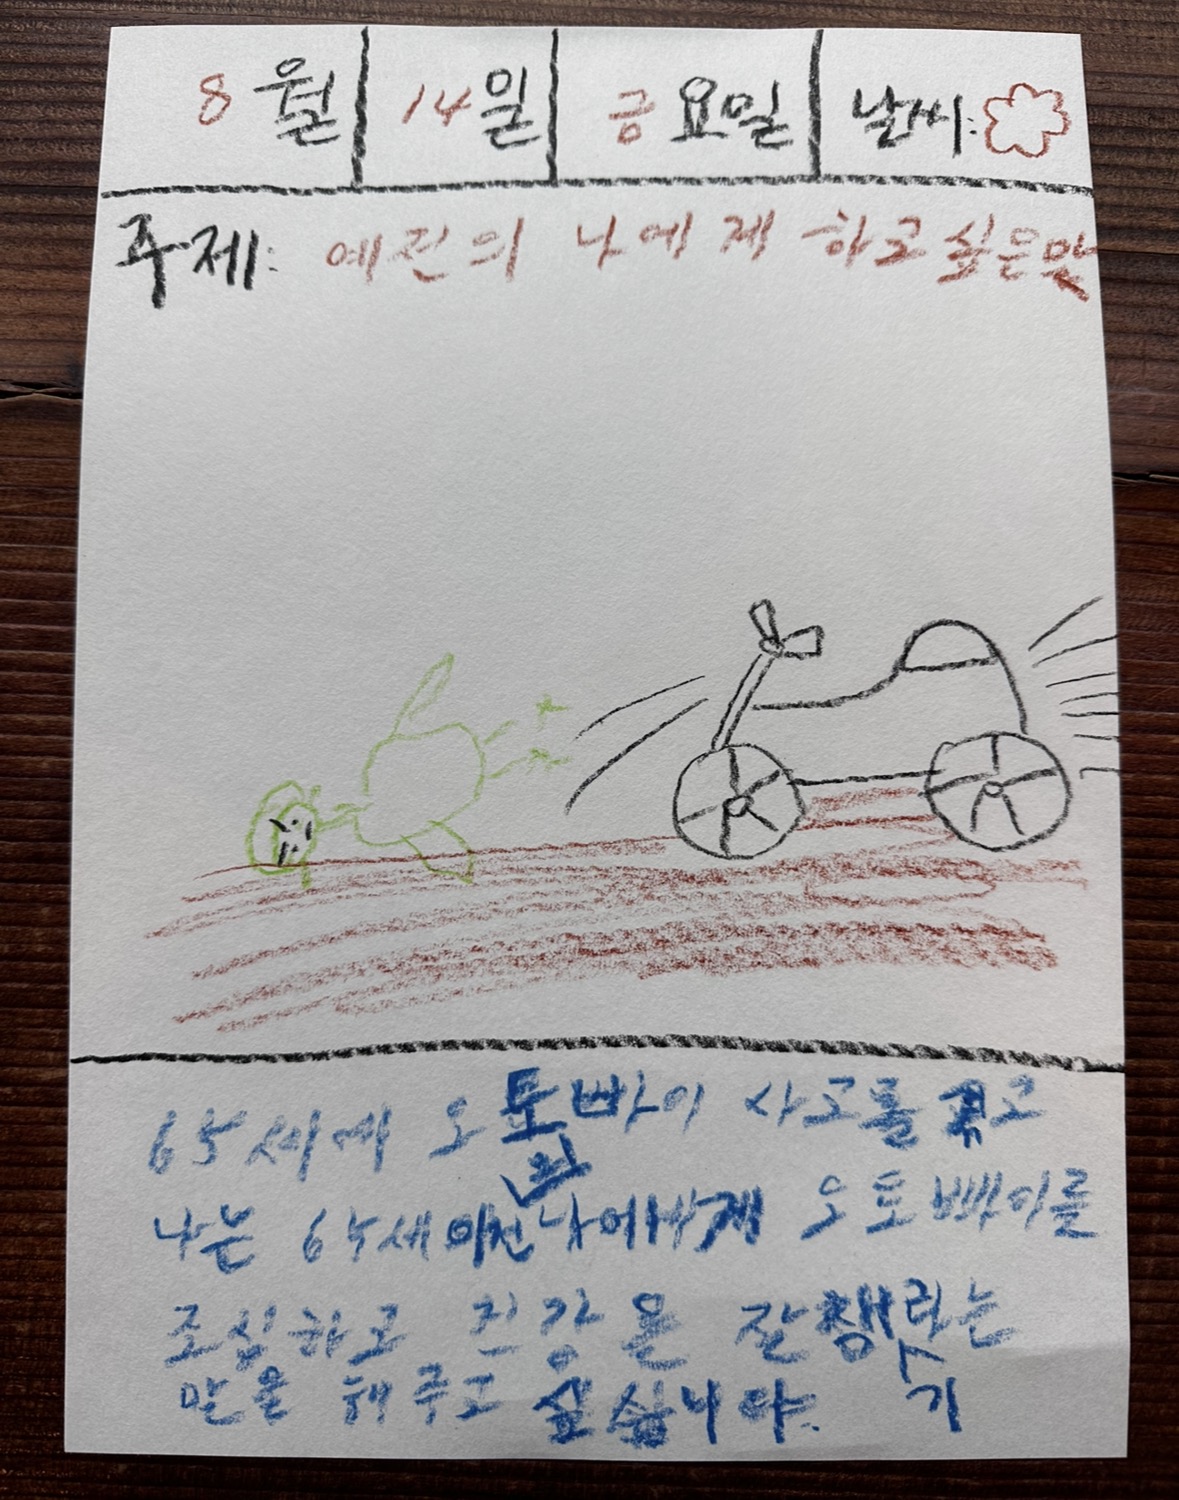 8월 14일 금요일 날씨:
주제: 예전의 나에게 하고싶은말
65세에 오토빠이 사고를 겪고
나는 65세 이전 나에게 오토빠이를
조심하고 건강을 잘챙기라는
말을 해주고 싶습니다.